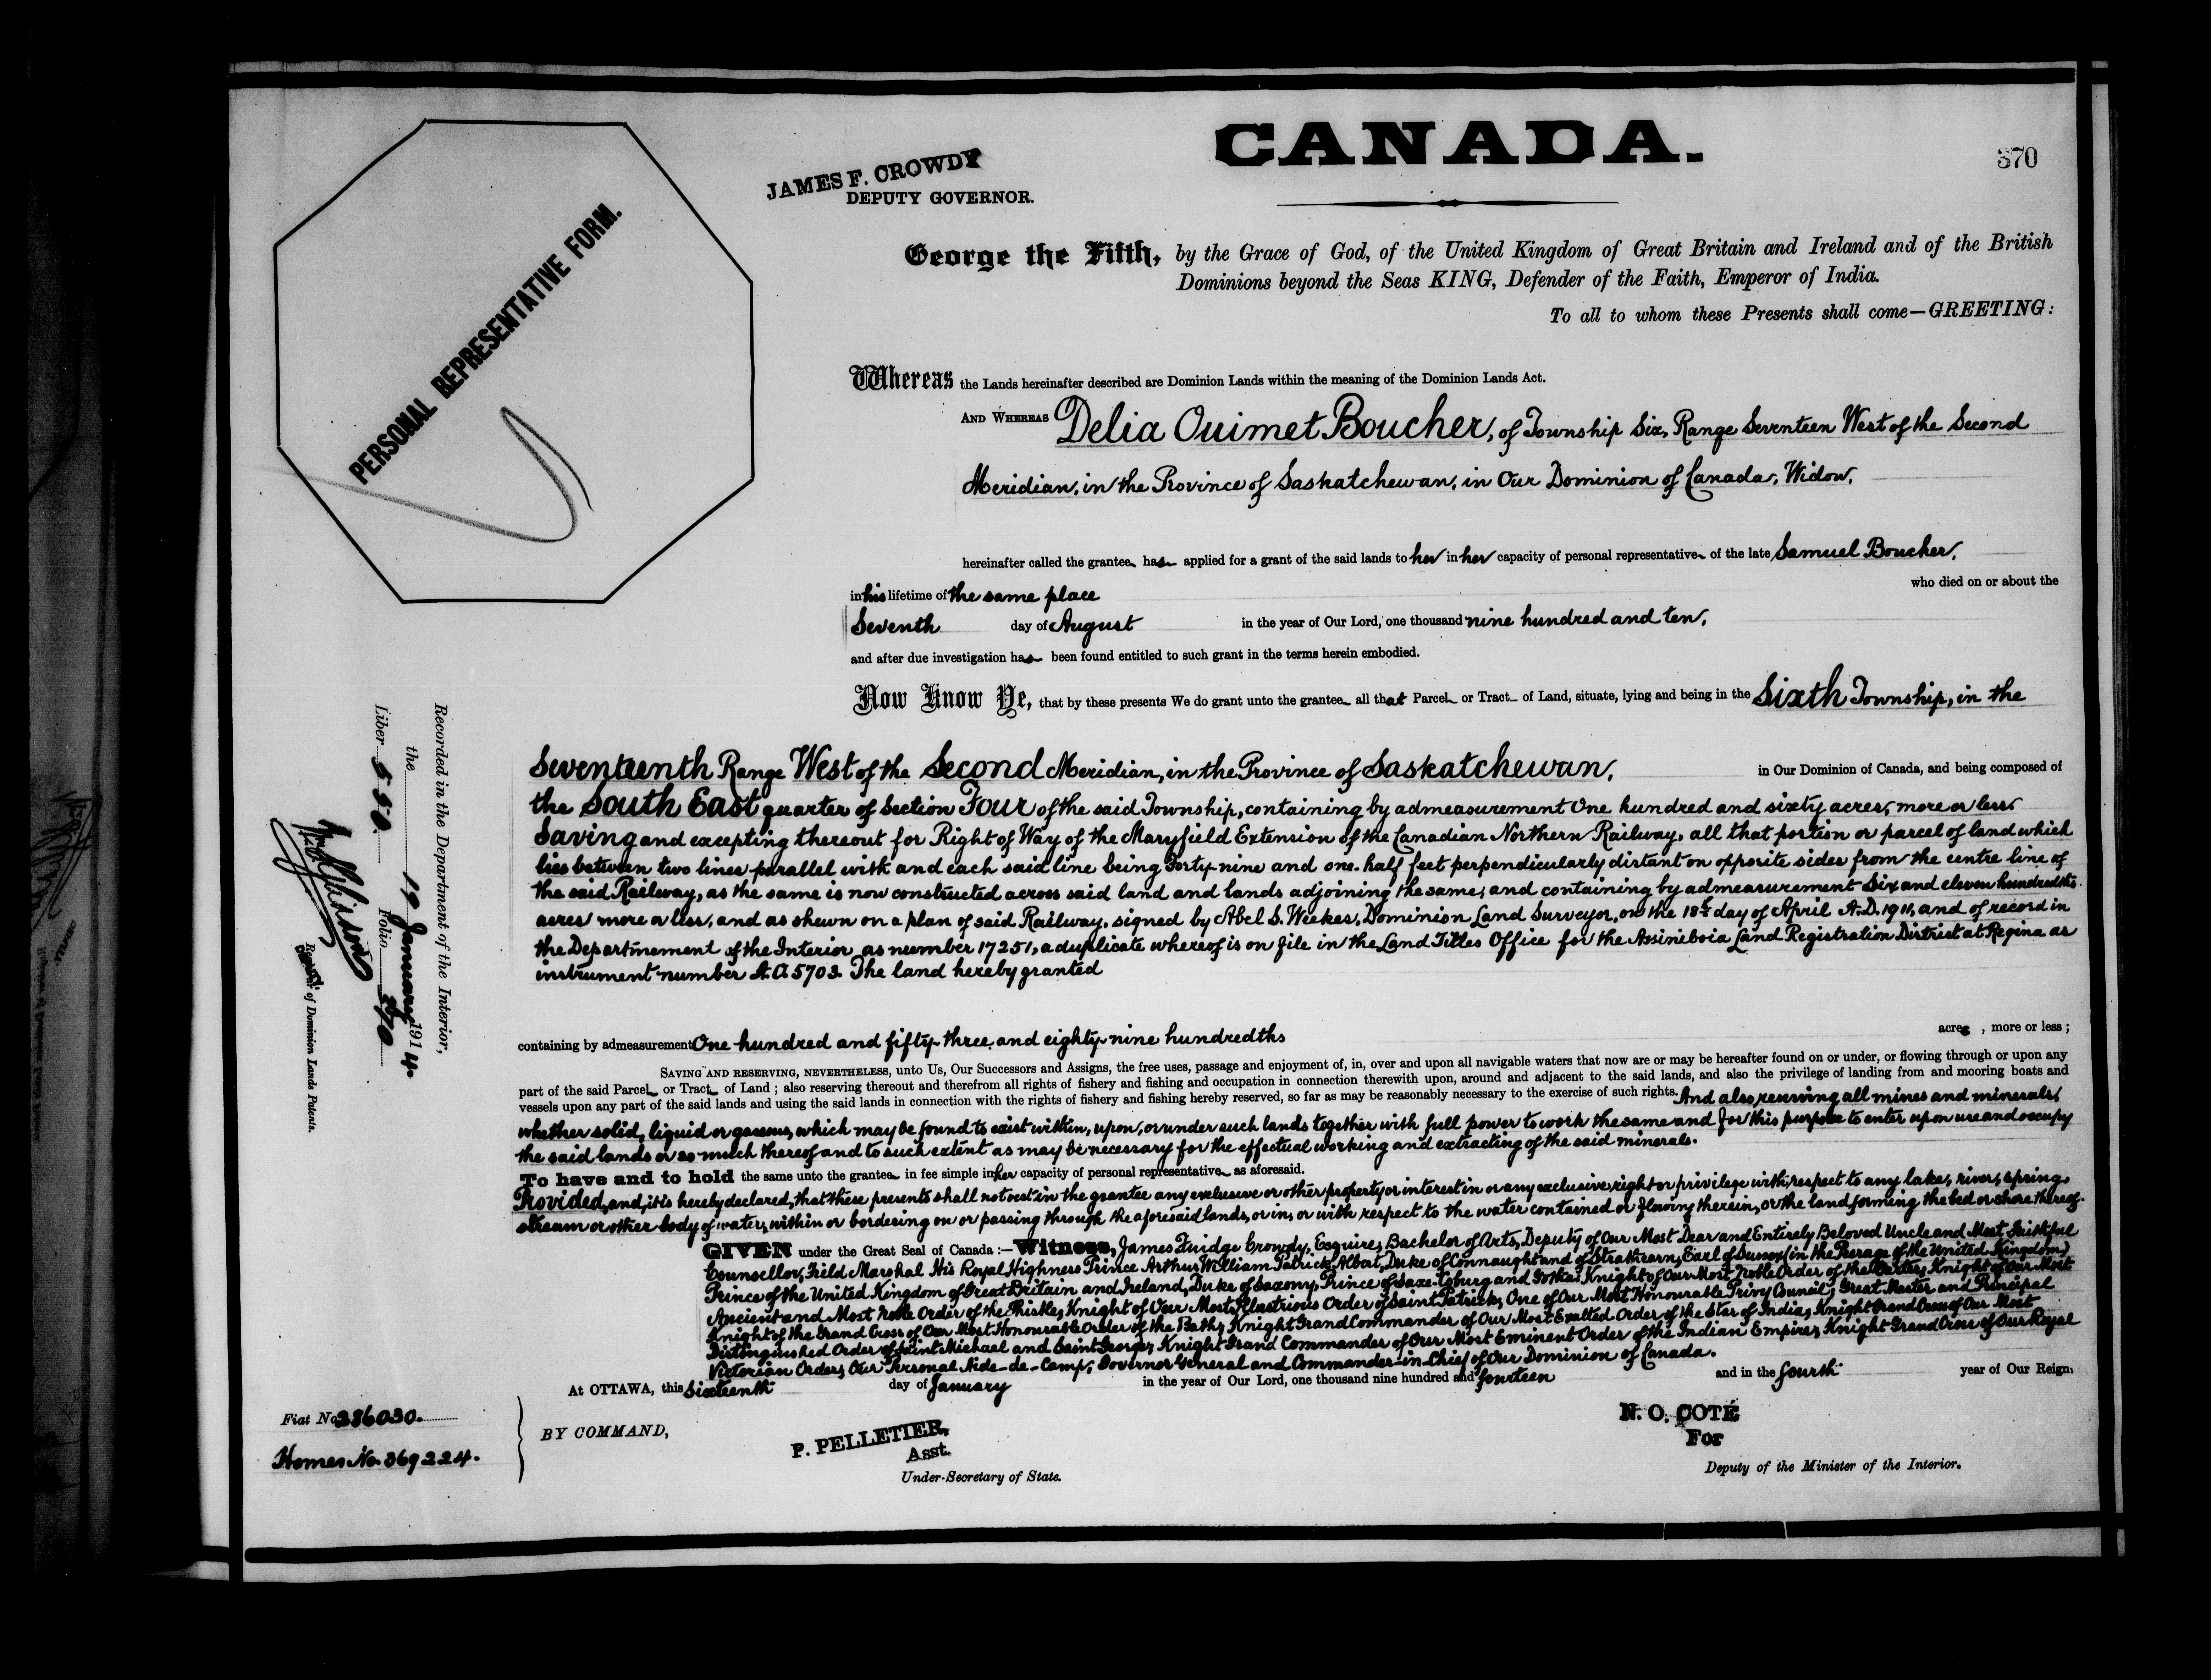 CANADA.
370
JAMES F. CROWDY
DEPUTY GOVERNOR.
PERSONAL REPRESENTATIVE FORM.
George the Fifth, by the Grace of God, of the United Kingdom of Great Britain and Ireland and of the British
Dominions beyond the Seas KING, Defender of the Faith, Emperor of India.
To all to whom these Presents shall come—GREETING:
Whereas the Lands hereinafter described are Dominion Lands within the meaning of the Dominion Lands Act.
AND WHEREAS Delia Ouimet Boucher, of Township Six, Range Seventeen West of the Second
Meridian, in the Province of Saskatchewan, in Our Dominion of Canada, Widow,
hereinafter called the grantee has applied for a grant of the said lands to her in her capacity of personal representative of the late Samuel Boucher,
in his lifetime of the same place who died on or about the
Seventh day of August in the year of Our Lord, one thousand nine hundred and ten,
and after due investigation has been found entitled to such grant in the terms herein embodied.
Now Know Ye, that by these presents We do grant unto the grantee all that Parcel or Tract of Land, situate, lying and being in the Sixth Township, in the
Seventeenth Range West of the Second Meridian, in the Province of Saskatchewan, in Our Dominion of Canada, and being composed of
the South East quarter of Section Four of the said Township, containing by admeasurement One hundred and sixty acres, more or less
Saving and excepting thereout for Right of Way of the Maryfield Extension of the Canadian Northern Railway, all that portion or parcel of land which
lies between two lines parallel with and each said line being Forty-nine and one-half feet perpendicularly distant on opposite sides from the centre line of
the said Railway, as the same is now constructed across said land and lands adjoining the same, and containing by admeasurement Six and eleven hundredths
acres more or less, and as shewn on a plan of said Railway, signed by Abel S. Weekes, Dominion Land Surveyor, on the 18th day of April A.D. 1911, and of record in
the Departmement of the Interior as number 17251, a duplicate whereof is on file in the Land Titles Office for the Assiniboia Land Registration District at Regina as
instrument number A.O. 5703. The land hereby granted
containing by admeasurement One hundred and fifty-three and eighty-nine hundredths acres , more or less ;
SAVING AND RESERVING, NEVERTHELESS, unto Us, Our Successors and Assigns, the free uses, passage and enjoyment of, in, over and upon all navigable waters that now are or may be hereafter found on or under, or flowing through or upon any
part of the said Parcel or Tract of Land ; also reserving thereout and therefrom all rights of fishery and fishing and occupation in connection therewith upon, around and adjacent to the said lands, and also the privilege of landing from and mooring boats and
vessels upon any part of the said lands and using the said lands in connection with the rights of fishery and fishing hereby reserved, so far as may be reasonably necessary to the exercise of such rights. And also reserving all mines and minerals,
whether solid, liquid or gaseous, which may be found to exist within, upon, or under such lands together with full power to work the same and for this purpose to enter upon use and occupy
the said lands or so much thereof and to such extent as may be necessary for the effectual working and extracting of the said minerals.
To have and to hold the same unto the grantee in fee simple in her capacity of personal representative as aforesaid.
Provided, and it is hereby declared, that these presents shall not vest in the grantee any exclusive or other property or interest in or any exclusive right or privilege with respect to any lake, river, spring,
stream or other body of water, within or bordering on or passing through the aforesaid lands, or in, or with respect to the water contained or flowing therein, or the land forming the bed or shore thereof.
GIVEN under the Great Seal of Canada :— Witness, James Fuidge Crowdy, Esquire, Bachelor of Arts, Deputy of Our Most Dear and Entirely Beloved Uncle and Most Faithful
Counsellor, Field Marshal His Royal Highness Prince Arthur William Patrick Albert, Duke of Connaught and of Strathearn, Earl of Sussex (in the Peerage of the United Kingdom)
Prince of the United Kingdom of Great Britain and Ireland, Duke of Saxony, Prince of Saxe-Coburg and Gotha; Knight of Our Most Noble Order of the Garter, Knight of Our Most
Ancient and Most Noble Order of the Thistle, Knight of Our Most Illustrious Order of Saint Patrick, One of Our Most Honourable Privy Council; Great Master and Principal
Knight of the Grand Cross of Our Most Honourable Order of the Bath; Knight Grand Commander of Our Most Exalted Order of the Star of India; Knight Grand Cross of Our Most
Distinguished Order of Saint Michael and Saint George; Knight Grand Commander of Our Most Eminent Order of the Indian Empire, Knight Grand Cross of Our Royal
Victorian Order, Our Personal Aide-de-Camp, Governor General and Commander-in-Chief of Our Dominion of Canada.
At OTTAWA, this Sixteenth day of January in the year of Our Lord, one thousand nine hundred and fourteen and in the fourth year of Our Reign.
BY COMMAND,
P. PELLETIER,
Asst.
Under-Secretary of State.
N. O. COTÉ
For
Deputy of the Minister of the Interior.
Fiat No 286030.
Homes No. 369224.
Recorded in the Department of the Interior,
the 19 January 1914.
Liber 550 Folio 370
of Dominion Lands Patents.